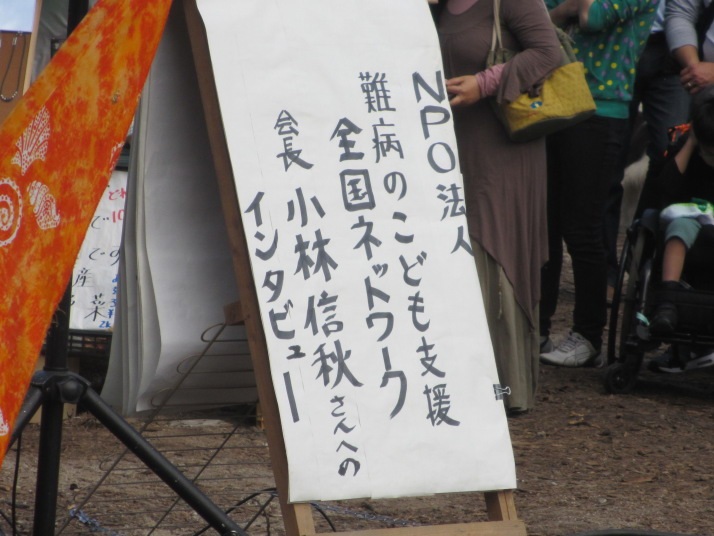 NPO法人
難病のこども支援
全国ネットワーク
会長 小林信秋さんへの
インタビュー